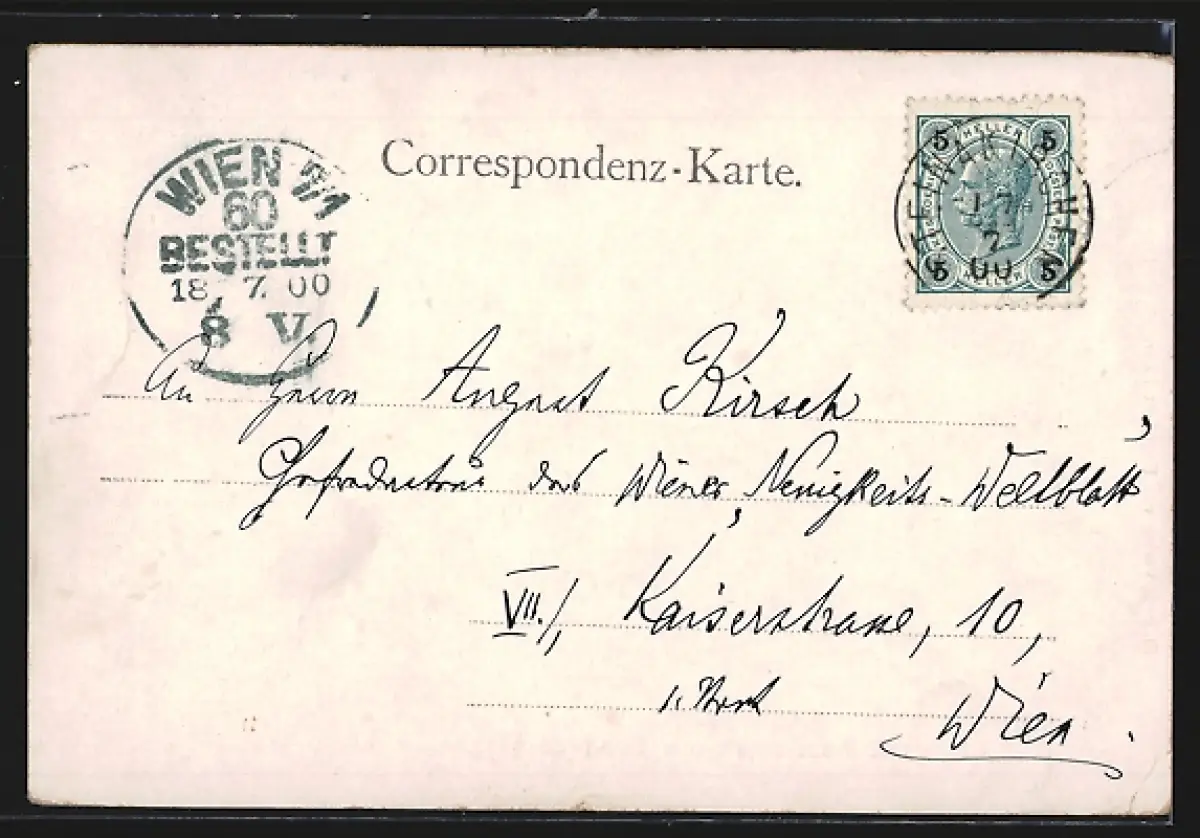 Correspondenz-Karte.
WIEN 7/1
60
BESTELLT
18. 7. 00
8 V.
5 HELLER 5
17
7
00
5 5
An Herrn August Kirsch,
Chefredacteur des Wiener Neuigkeits-Weltblatt,
VII./, Kaiserstrasse, 10,
Wien.